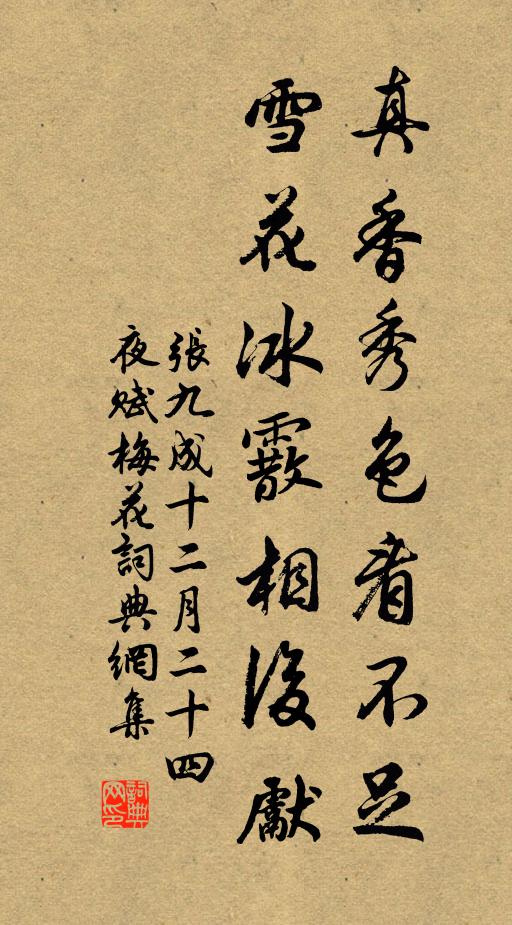 真香秀色看不足
雪花冰霰相後獻
張九成十二月二十四
夜賦梅花詞典網集
詞典
网印